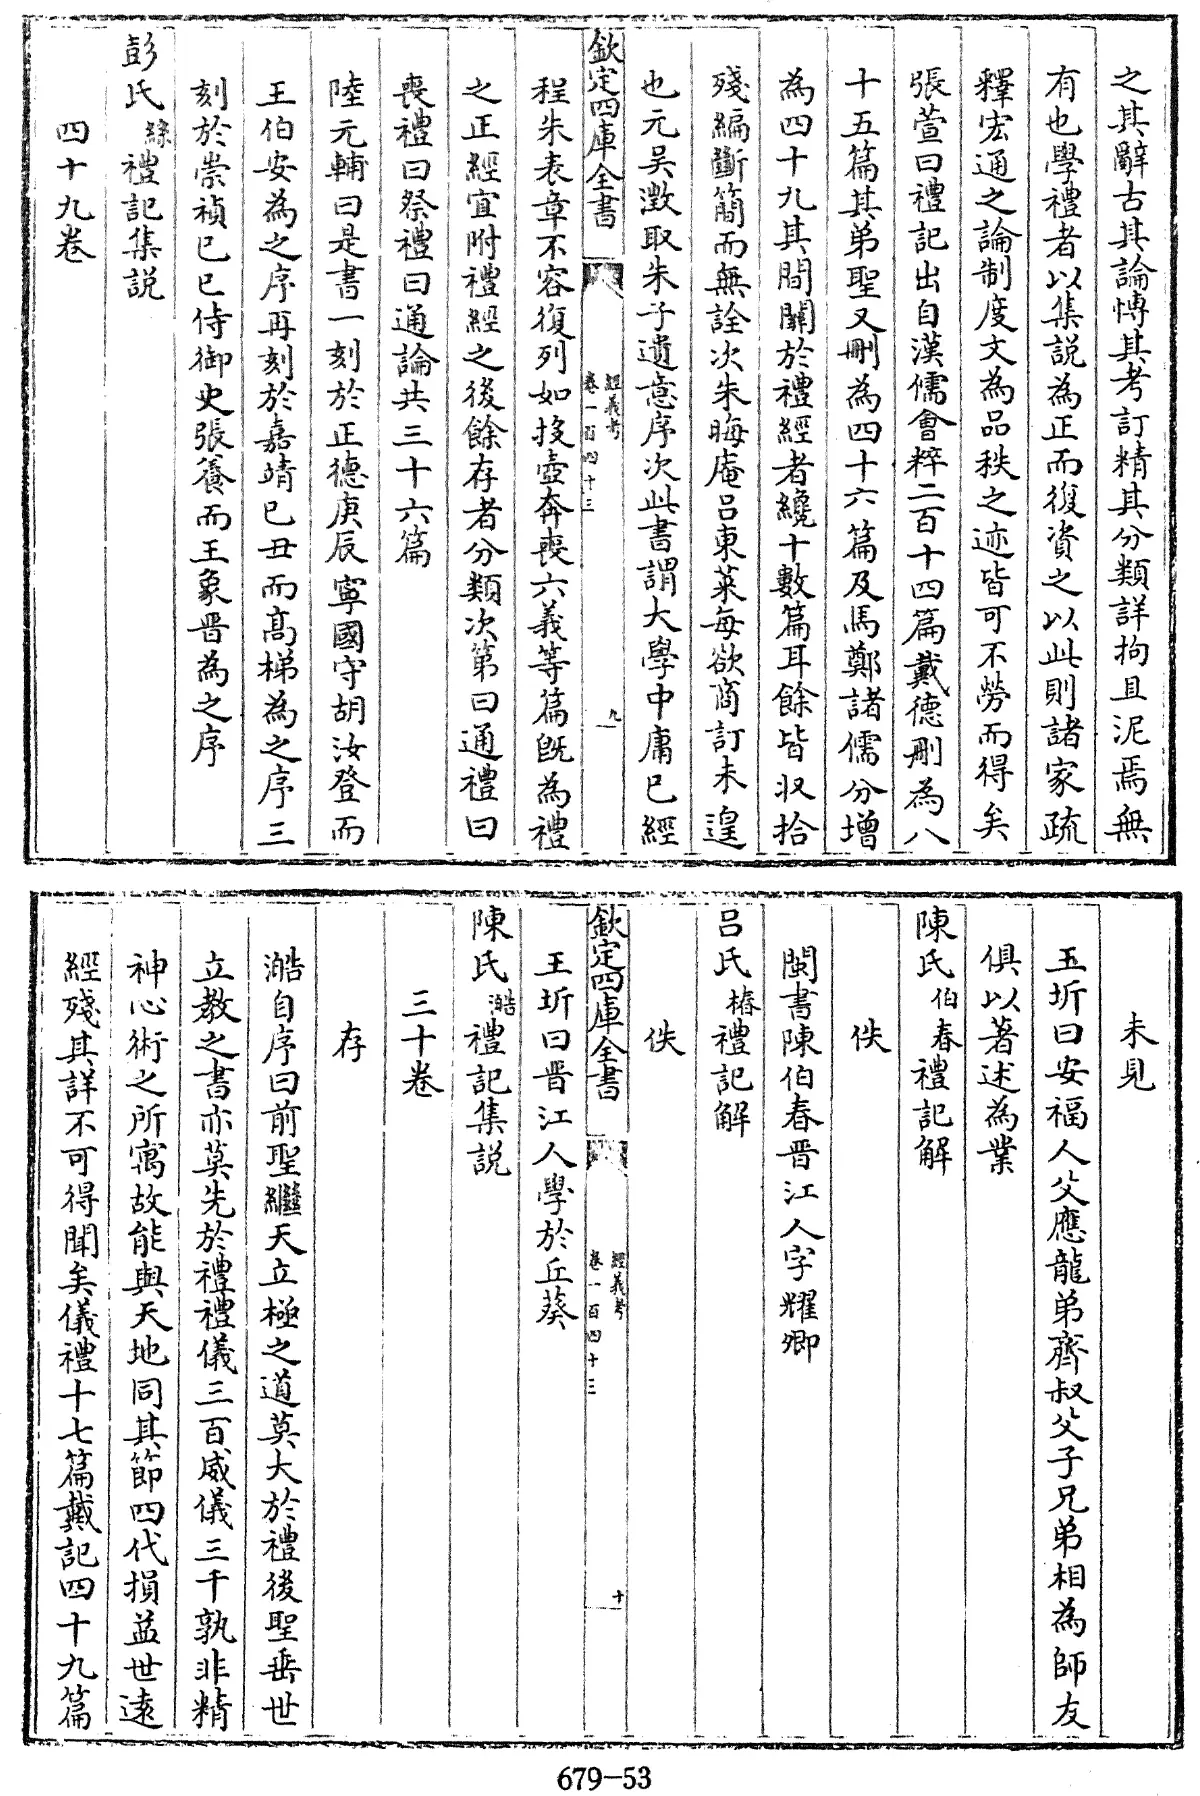 之其辭古其論愽其考訂精其分類詳拘且泥焉無
有也學禮者以集説為正而復資之以此則諸家疏
釋宏通之論制度文為品秩之迹皆可不勞而得矣
張萱曰禮記出自漢儒會粹二百十四篇戴德刪為八
十五篇其弟聖又刪為四十六篇及馬鄭諸儒分增
為四十九其間關於禮經者纔十數篇耳餘皆収拾
殘編斷簡而無詮次朱晦庵吕東萊每欲商訂未遑
也元吴澂取朱子遺意序次此書謂大學中庸已經
欽定四庫全書
經義考
卷一百四十三
九
程朱表章不容復列如投壺奔喪六義等篇既為禮
之正經宜附禮經之後餘存者分類次第曰通禮曰
喪禮曰祭禮曰通論共三十六篇
陸元輔曰是書一刻於正德庚辰寧國守胡汝登而
王伯安為之序再刻於嘉靖己丑而髙梯為之序三
刻於崇禎己巳侍御史張養而王象晉為之序
彭氏絲禮記集説
四十九卷
未見
王圻曰安福人父應龍弟齊叔父子兄弟相為師友
俱以著述為業
陳氏伯春禮記解
佚
閩書陳伯春晉江人字耀卿
吕氏椿禮記解
佚
欽定四庫全書
經義考
卷一百四十三
十
王圻曰晉江人學於丘葵
陳氏澔禮記集説
三十卷
存
澔自序曰前聖繼天立極之道莫大於禮後聖垂世
立教之書亦莫先於禮禮儀三百威儀三千孰非精
神心術之所寓故能與天地同其節四代損益世逺
經殘其詳不可得聞矣儀禮十七篇戴記四十九篇
679-53